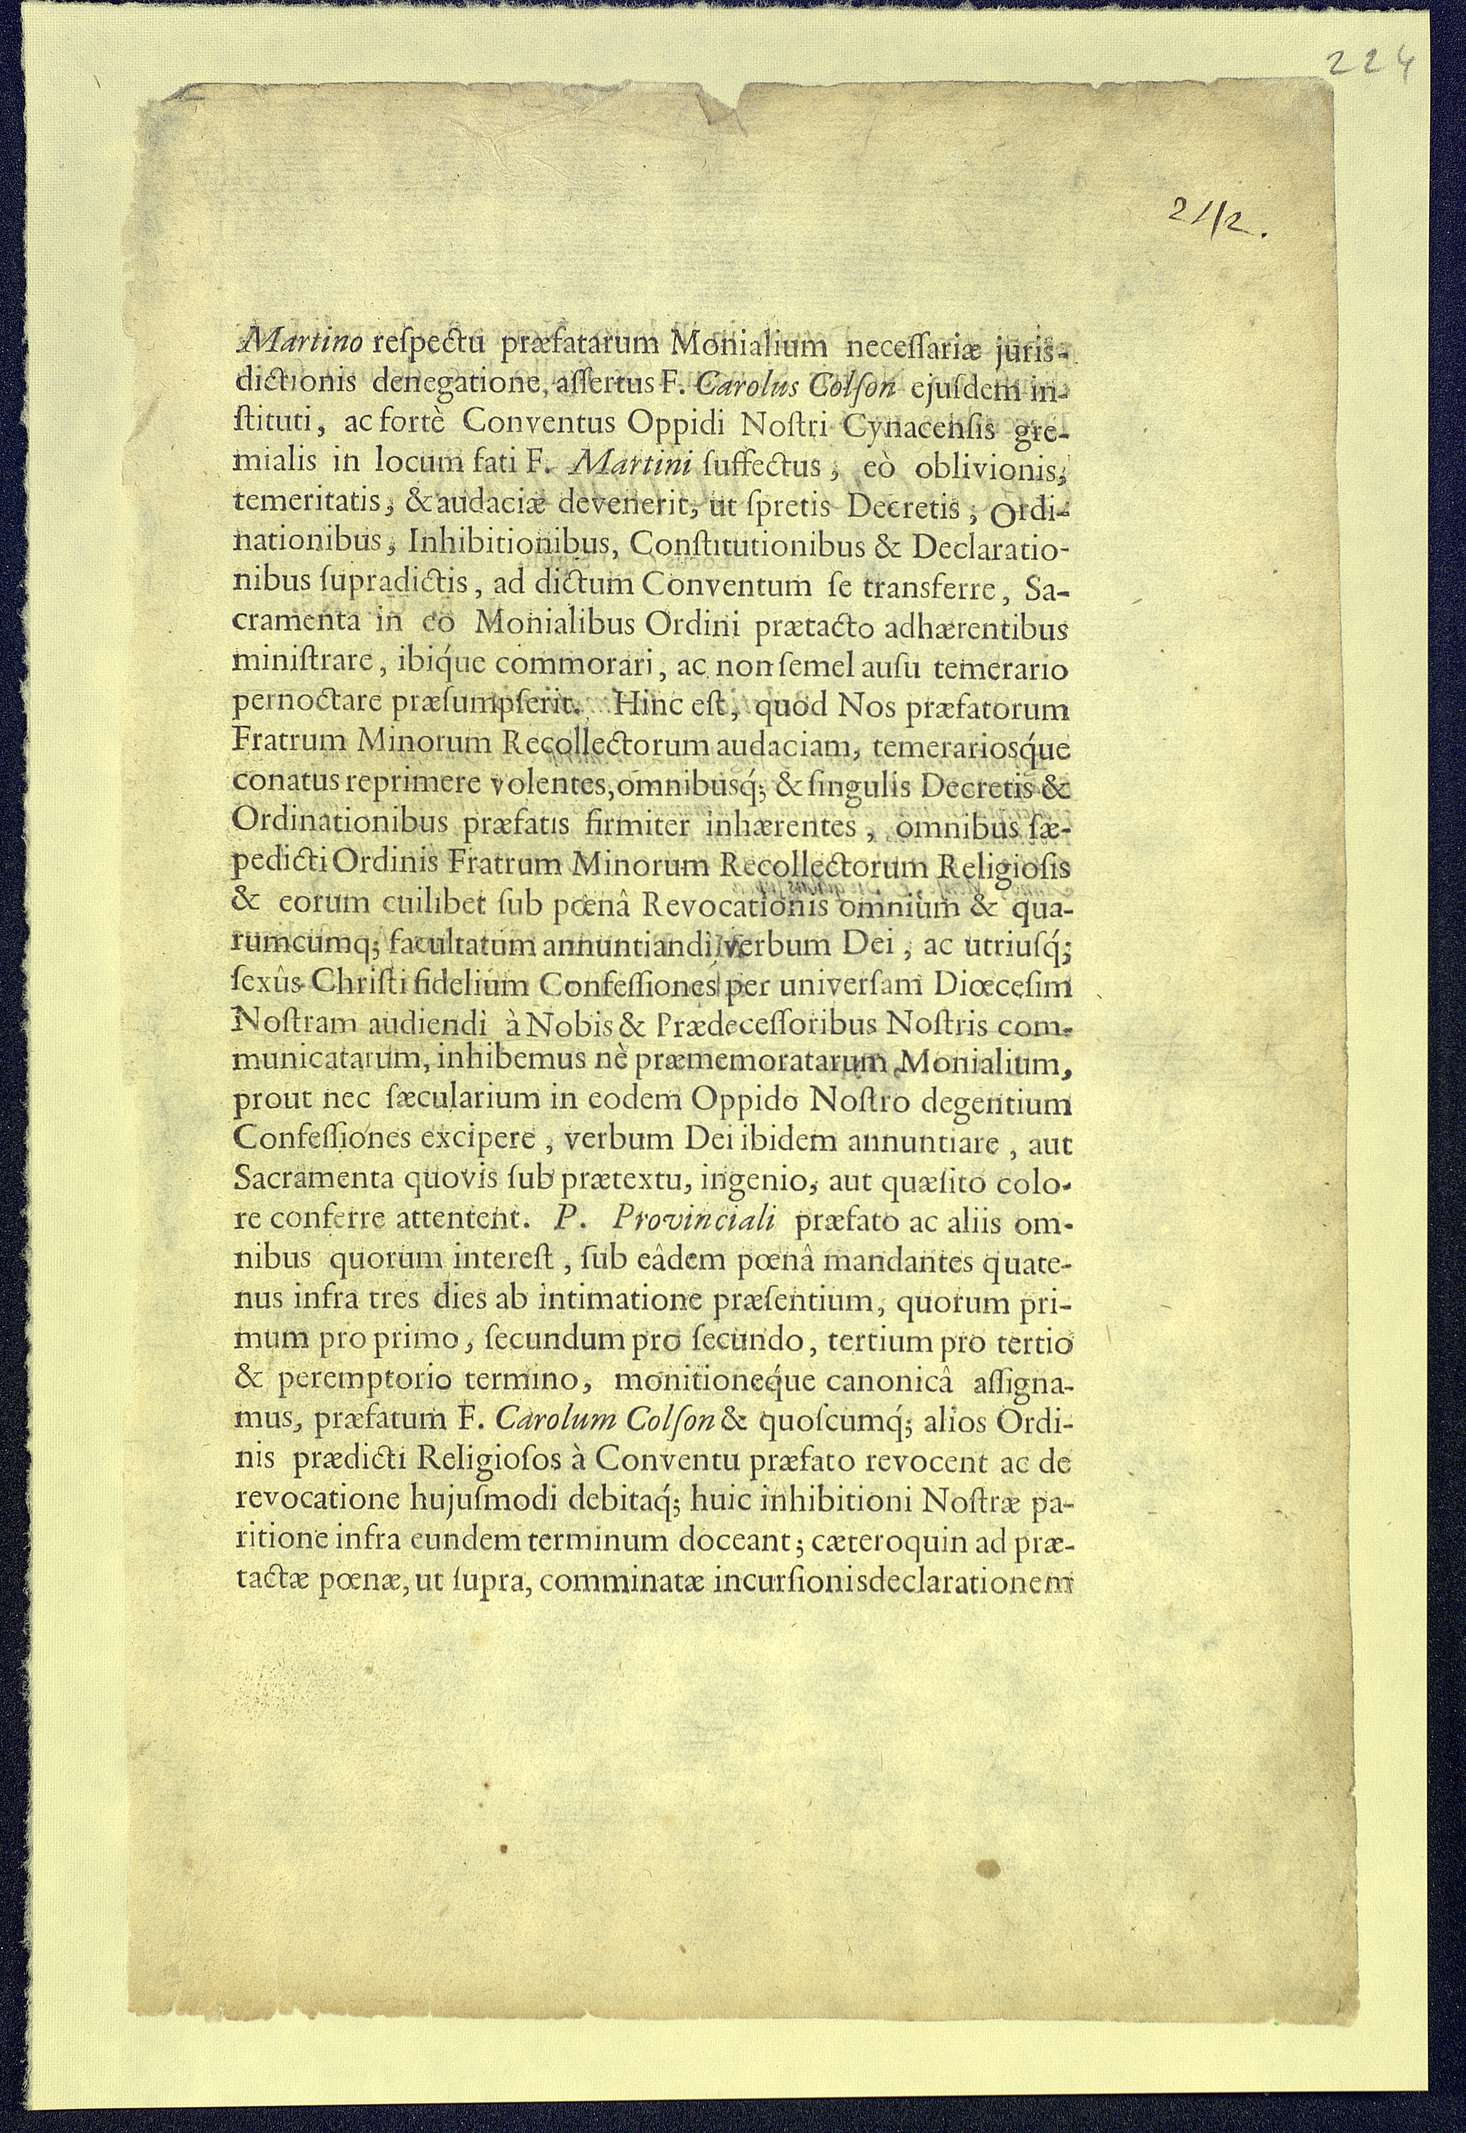 224
242.
Martino reſpectu præfatarum Monialium neceſſariæ juris-
dictionis denegatione, aſſertus F. Carolus Colſon ejuſdem in-
ſtituti, ac fortè Conventus Oppidi Noſtri Cynacenſis gre-
mialis in locum fati F. Martini ſuffectus, eò oblivionis,
temeritatis, & audaciæ devenerit, ut ſpretis Decretis, Ordi-
nationibus, Inhibitionibus, Conſtitutionibus & Declaratio-
nibus ſupradictis, ad dictum Conventum ſe transferre, Sa-
cramenta in eo Monialibus Ordini prætacto adhærentibus
miniſtrare, ibiq́ue commorari, ac non ſemel auſu temerario
pernoctare præſumpſerit. Hinc eſt, quod Nos præfatorum
Fratrum Minorum Recollectorum audaciam, temerarioſq́ue
conatus reprimere volentes, omnibuſq́; & ſingulis Decretis &
Ordinationibus præfatis firmiter inhærentes, omnibus ſæ-
pedicti Ordinis Fratrum Minorum Recollectorum Religioſis
& eorum cuilibet ſub pœnâ Revocationis omnium & qua-
rumcumq; facultatum annuntiandi verbum Dei, ac utriuſq́;
ſexûs Chriſti fidelium Confeſſiones per univerſam Diœceſim
Noſtram audiendi à Nobis & Prædeceſſoribus Noſtris com-
municatarum, inhibemus nè præmemoratarum Monialium,
prout nec ſæcularium in eodem Oppido Noſtro degentium
Confeſſiones excipere, verbum Dei ibidem annuntiare, aut
Sacramenta quovis ſub prætextu, ingenio, aut quæſito colo-
re conferre attentent. P. Provinciali præfato ac aliis om-
nibus quorum intereſt, ſub eâdem pœnâ mandantes quate-
nus infra tres dies ab intimatione præſentium, quorum pri-
mum pro primo, ſecundum pro ſecundo, tertium pro tertio
& peremptorio termino, monitioneq́ue canonicâ aſſigna-
mus, præfatum F. Carolum Colſon & quoſcumq́; alios Ordi-
nis prædicti Religioſos à Conventu præfato revocent ac de
revocatione hujuſmodi debitaq́; huic inhibitioni Noſtræ pa-
ritione infra eundem terminum doceant; cæteroquin ad præ-
tactæ pœnæ, ut ſupra, comminatæ incurſionisdeclarationem